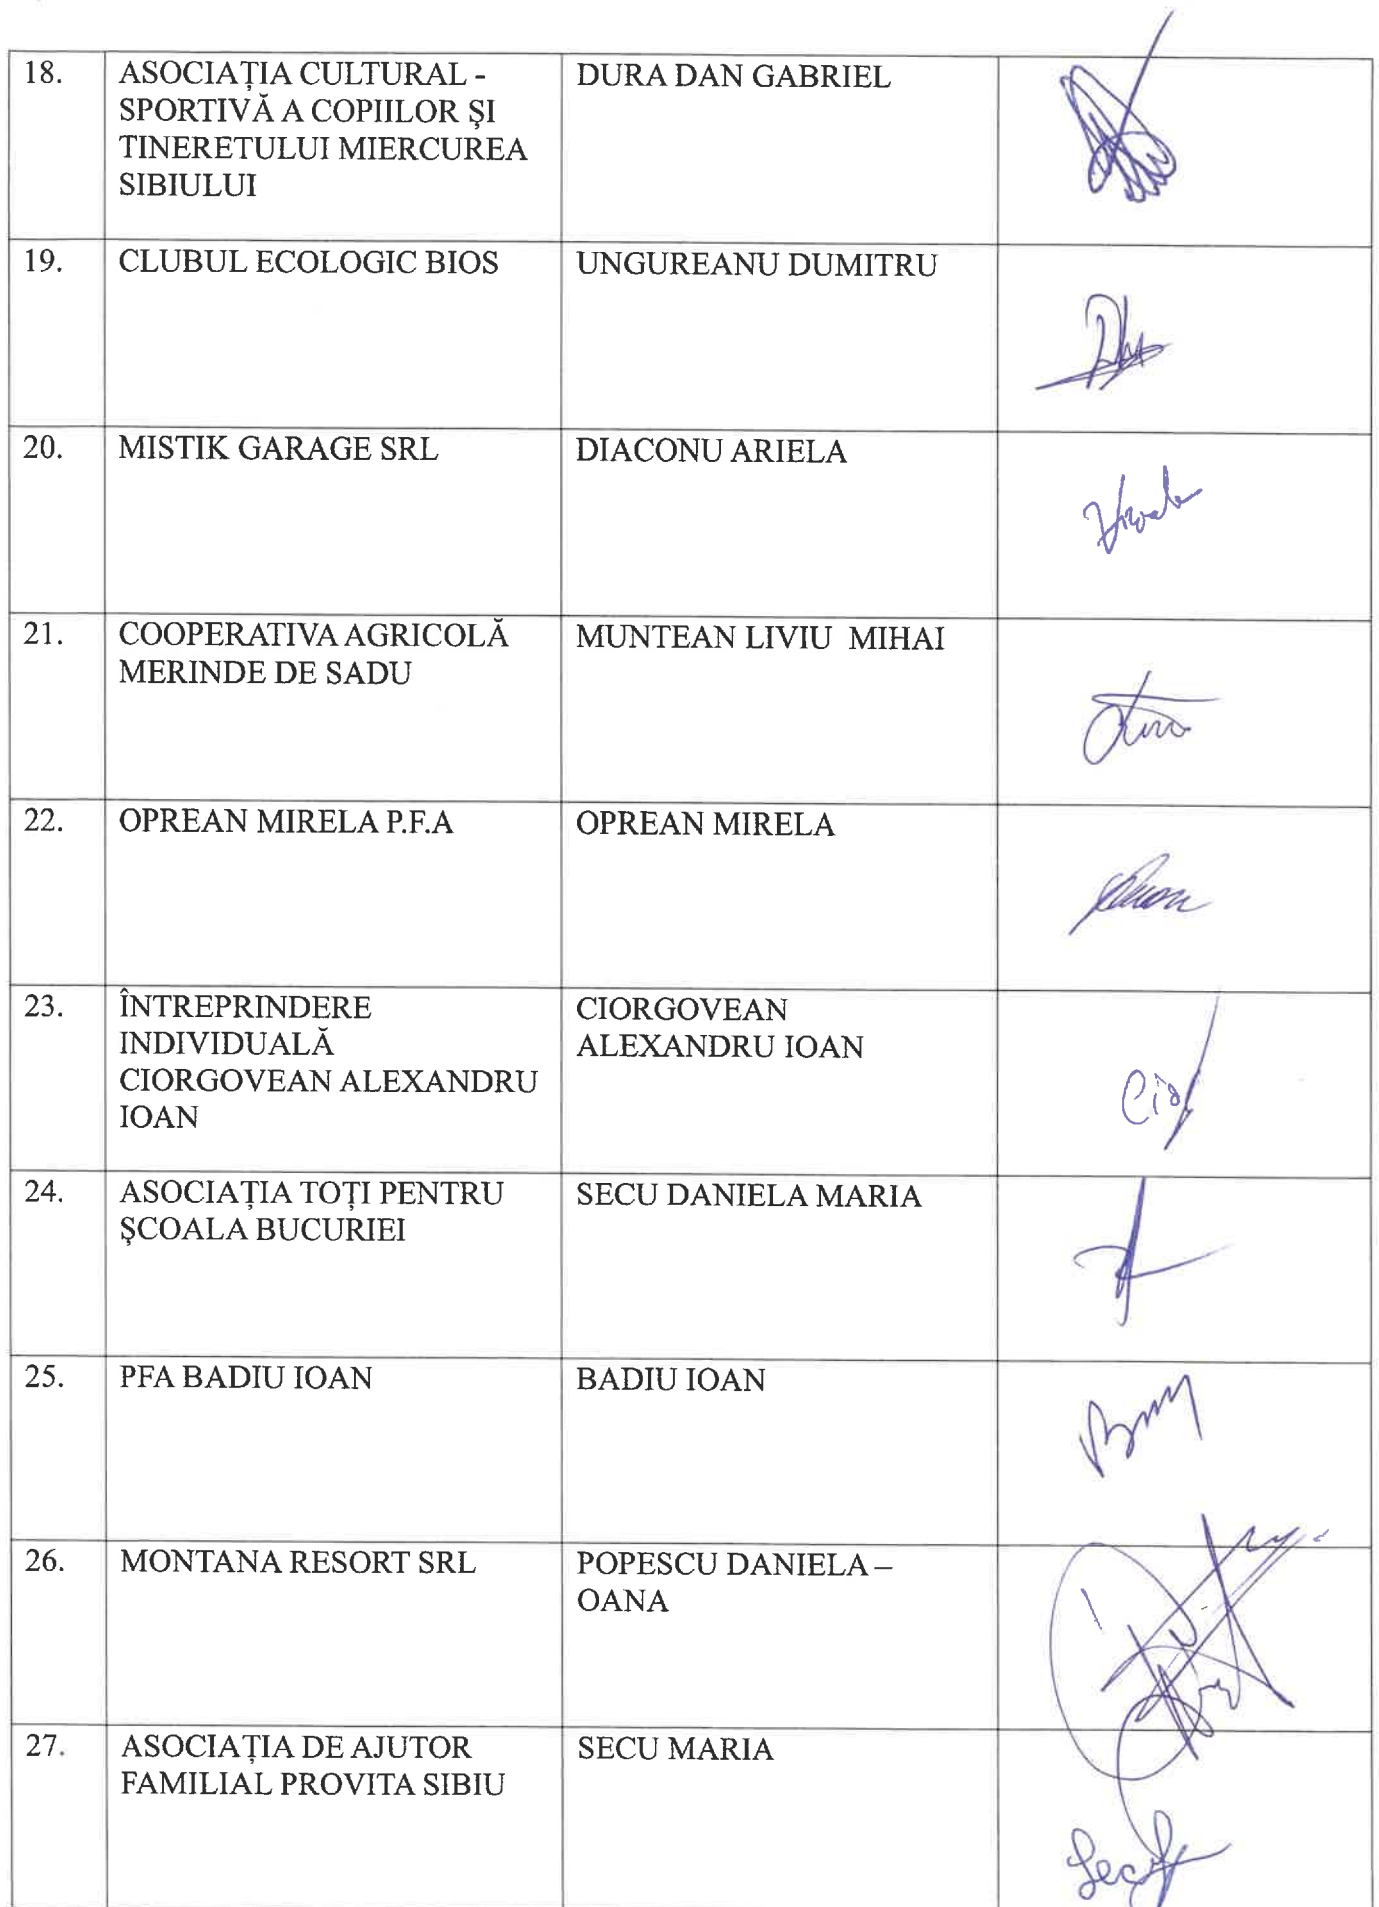 18.
ASOCIAȚIA CULTURAL -
SPORTIVĂ A COPIILOR ȘI
TINERETULUI MIERCUREA
SIBIULUI
DURA DAN GABRIEL
19.
CLUBUL ECOLOGIC BIOS
UNGUREANU DUMITRU
20.
MISTIK GARAGE SRL
DIACONU ARIELA
21.
COOPERATIVA AGRICOLĂ
MERINDE DE SADU
MUNTEAN LIVIU MIHAI
22.
OPREAN MIRELA P.F.A
OPREAN MIRELA
23.
ÎNTREPRINDERE
INDIVIDUALĂ
CIORGOVEAN ALEXANDRU
IOAN
CIORGOVEAN
ALEXANDRU IOAN
24.
ASOCIAȚIA TOȚI PENTRU
ȘCOALA BUCURIEI
SECU DANIELA MARIA
25.
PFA BADIU IOAN
BADIU IOAN
26.
MONTANA RESORT SRL
POPESCU DANIELA –
OANA
27.
ASOCIAȚIA DE AJUTOR
FAMILIAL PROVITA SIBIU
SECU MARIA